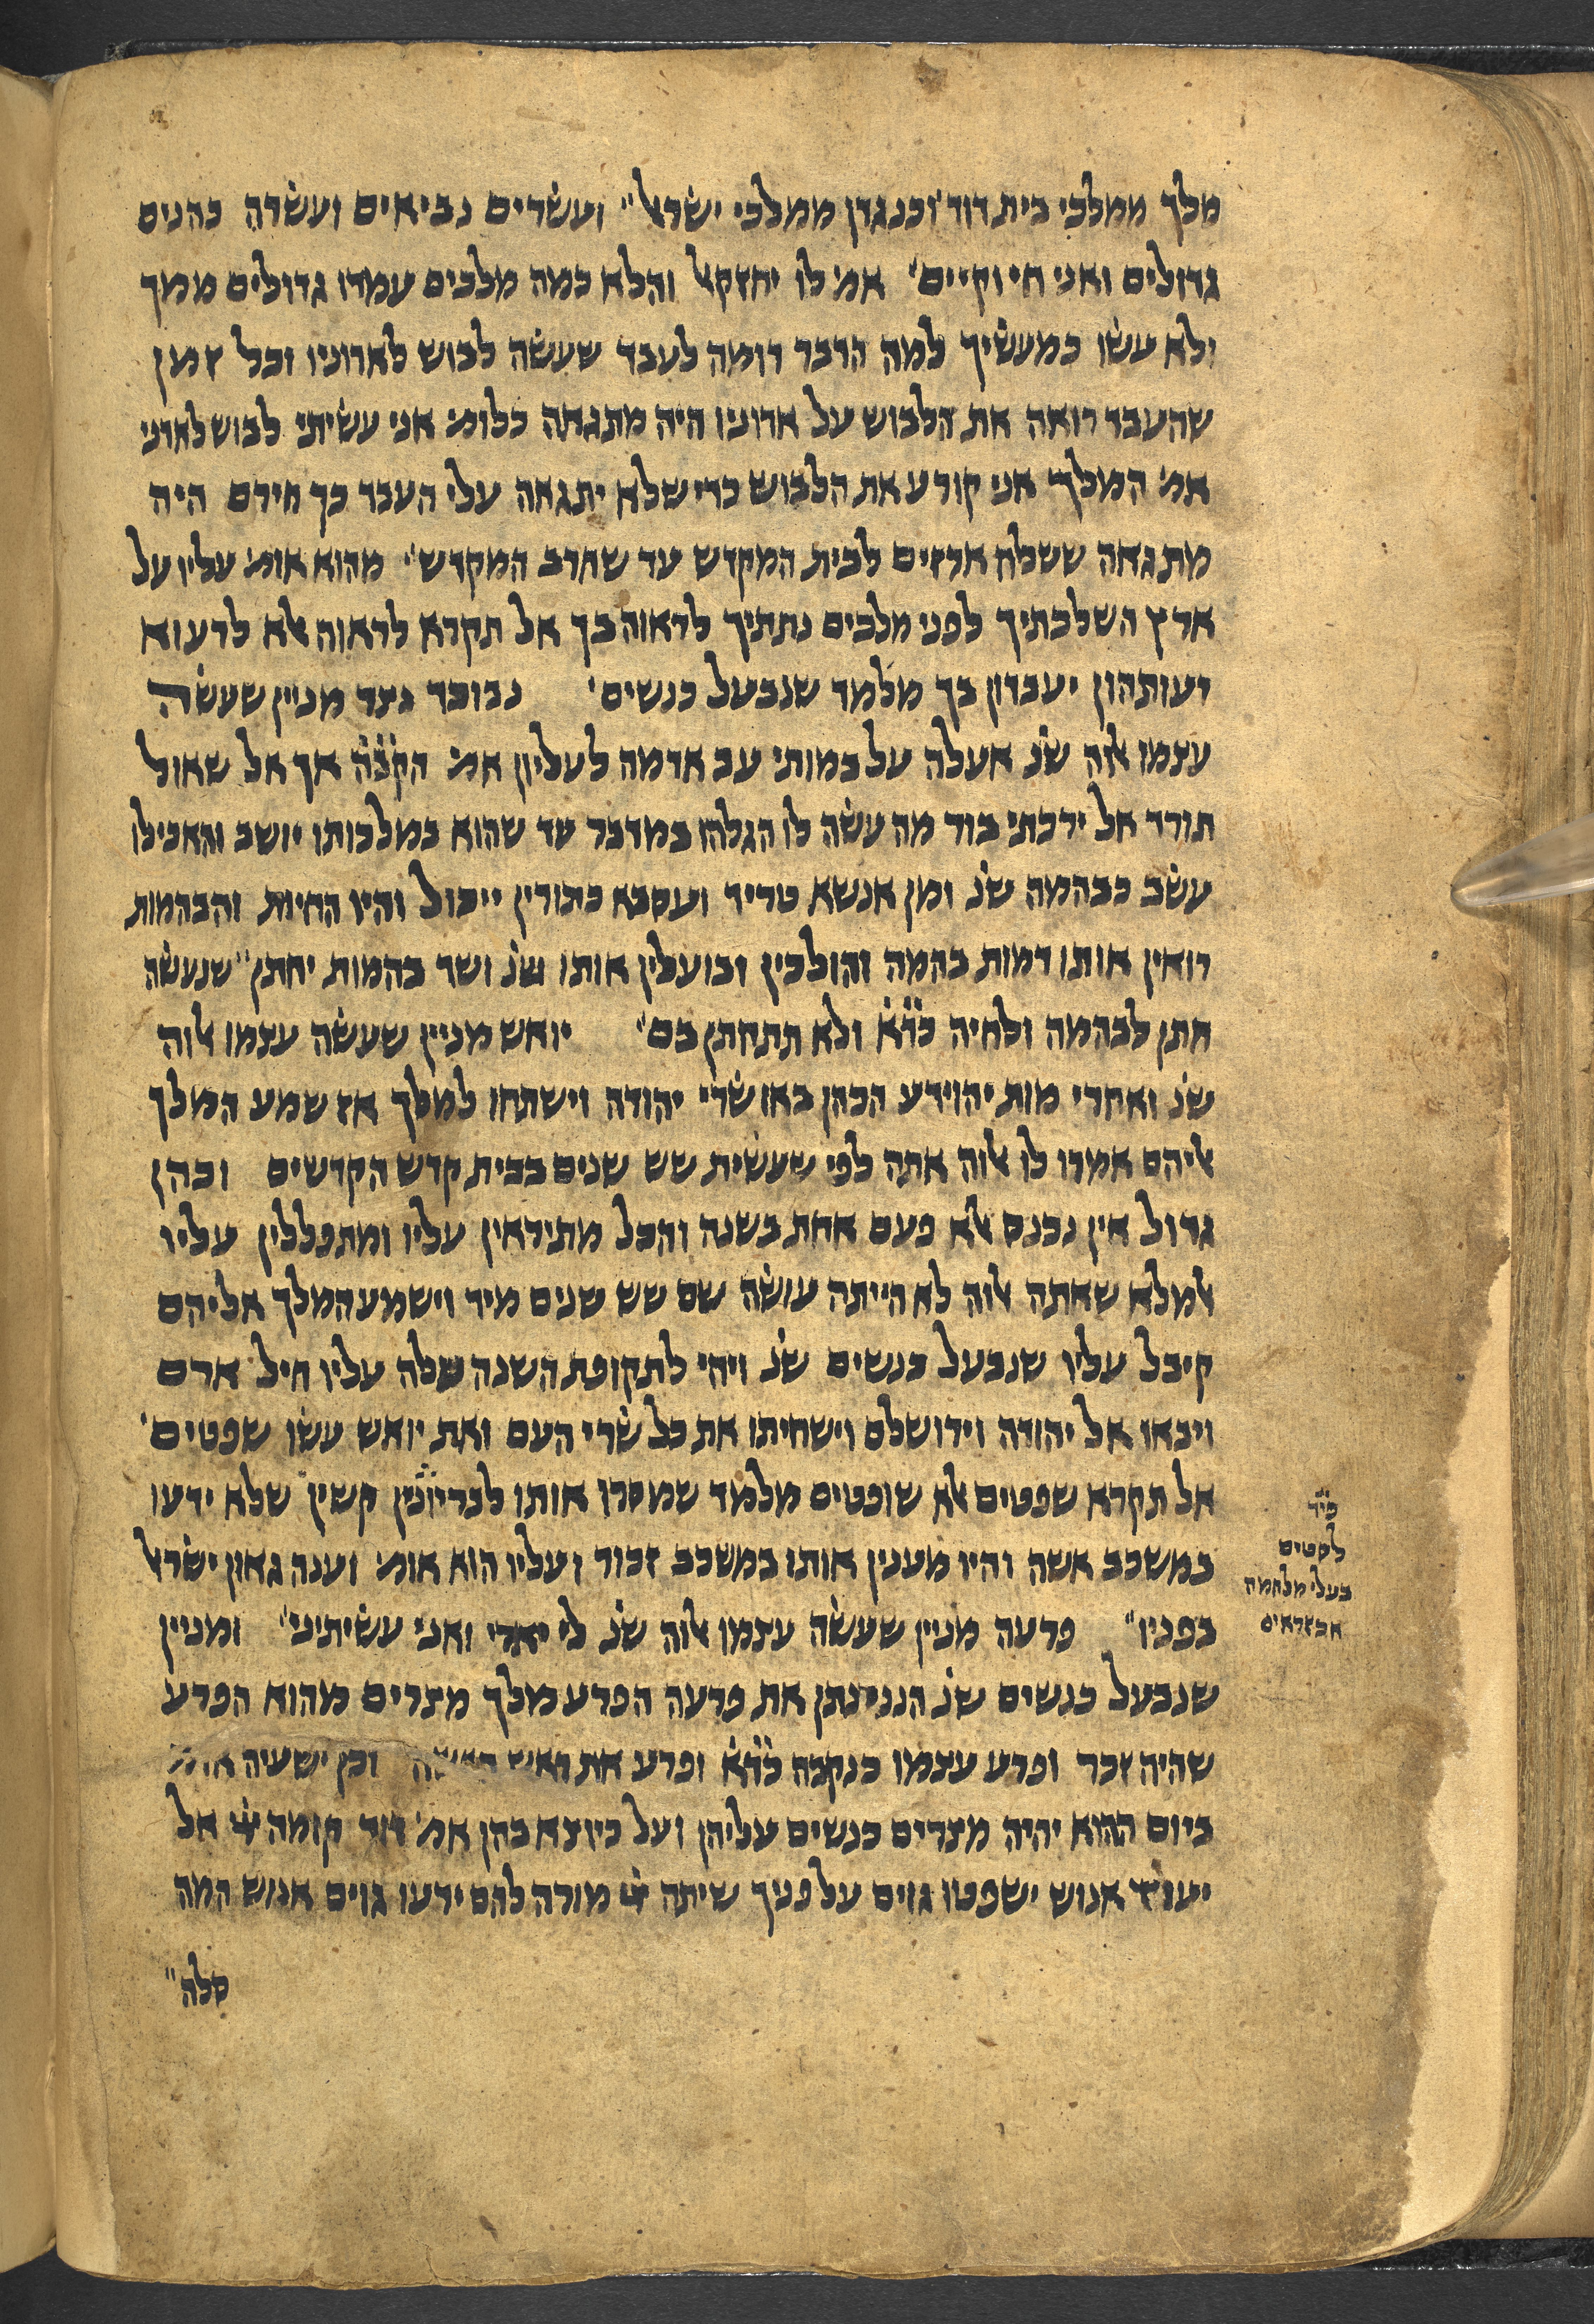 מלך ממלכי בית דוד וכנגדן ממלכי ישראל" ועשרים נביאים ועשרה כהנים
גדולים ואני חי וקיים' אמ' לו יחזקאל והלא כמה מלכים עמדו גדולים ממך
ולא עשו כמעשיך למה הדבר דומה לעבד שעשה לבוש לאדוניו וכל זמן
שהעבד רואה את הלבוש על אדוניו היה מתגאה כלומ' אני עשיתי לבוש לאדני
אמ' המלך אני קורע את הלבוש כדי שלא יתגאה עלי העבד כך חירם היה
מתגאה ששלח ארזים לבית המקדש עד שחרב המקדש" מהוא אומ' עליו על
ארץ השלכתיך לפני מלכים נתתיך לראוה בך אל תקרא לראוה אלא לרעוא
דעותהון יעבדון בך מלמד שנבעל כנשים' נבוכד נצר מניין שעשה
עצמו אלוה שנ' אעלה על במותי עב אדמה לעליון אמ' הקב"ה אך אל שאול
תורד אל ירכתי בור מה עשה לו הגלהו במדבר עד שהוא במלכותו יושב והאכילו
עשב כבהמה שנ' ומן אנשא טריד ועסבא כתורין ייכול והיו החיות והבהמות
רואין אותו דמות בהמה והולכין ובועלין אותו שנ' ושד בהמות יחתן" שנעשה
חתן לבהמה ולחיה כד"א ולא תתחתן בם" יואש מניין שעשה עצמו אלוה
שנ' ואחרי מות יהוידע הכהן באו שרי יהודה וישתחו למלך אז שמע המלך
אליהם אמרו לו אלוה אתה לפי שעשית שש שנים בבית קדש הקדשים וכהן
גדול אין נכנס אלא פעם אחת בשנה והכל מתיראין עליו ומתפללין עליו
אלמלא שאתה אלוה לא הייתה עושה שם שש שנים מיד וישמע המלך אליהם
קיבל עליו שנבעל כנשים שנ' ויהי לתקופת השנה עלה עליו חיל ארם
ויבאו אל יהודה וירושלם וישחיתו את כל שרי העם ואת יואש עשו שפטים'
אל תקרא שפטים אלא שופטים מלמד שמסרו אותו לבריונין קשין שלא ידעו
במשכב אשה והיו מענין אותו במשכב זכור ועליו הוא אומ' וענה גאון ישראל
בפניו" פרעה מניין שעשה עצמו אלוה שנ' לי יארי ואני עשיתיני" ומניין
שנבעל כנשים שנ' הנני נתן את פרעה הפרע מלך מצרים מהוא הפרע
שהיה זכר ופרע עצמו כנקבה כד"א ופרע את ראש האשה וכן ישעיה אומ'
ביום ההוא יהיה מצרים כנשים עליהן ועל כיוצא בהן אמ' דוד קומה יי אל
יעוז אנוש ישפטו גוים על פניך שיתה יי מורה להם ידעו גוים אנוש המה
סלה"
פי'ר
לסטים
בעלי מלחמה
אכזראים